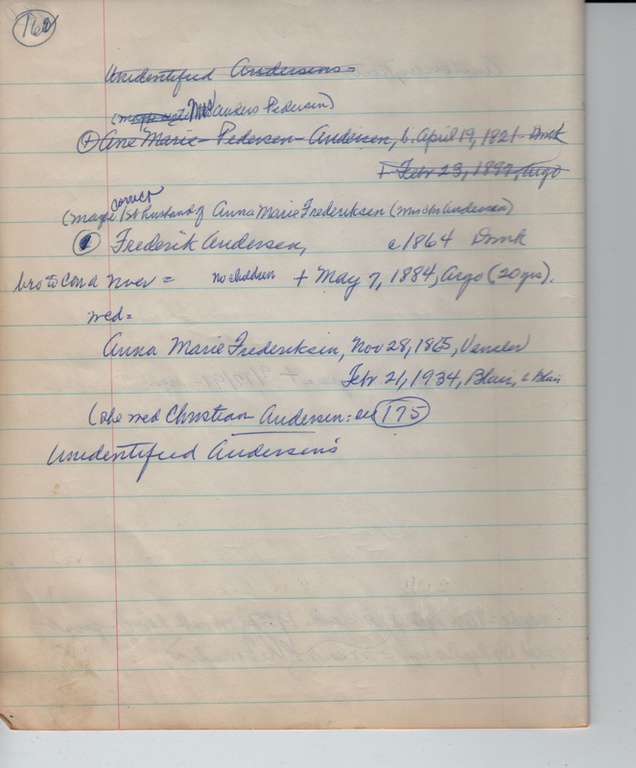 162
Unidentified Andersens
(maybe Mrs Anders Pedersen)
① Ane Marie Pedersen Andersen, b. April 19, 1821 Dmk
+ Feb 23, 1897, Argo
correct
(maybe 1st husband of Anna Marie Frederiksen (Mrs Chr Andersen)
① Frederik Andersen, c 1864 Dmk
bro to Con a Nver = no children + May 7, 1884, Argo (20 yrs).
wed =
Anna Marie Frederiksen, Nov 28, 1865,
Feb. 21, 1934, Blair, Blair
(she wed Christian Andersen: see 175
Unidentified Andersen's